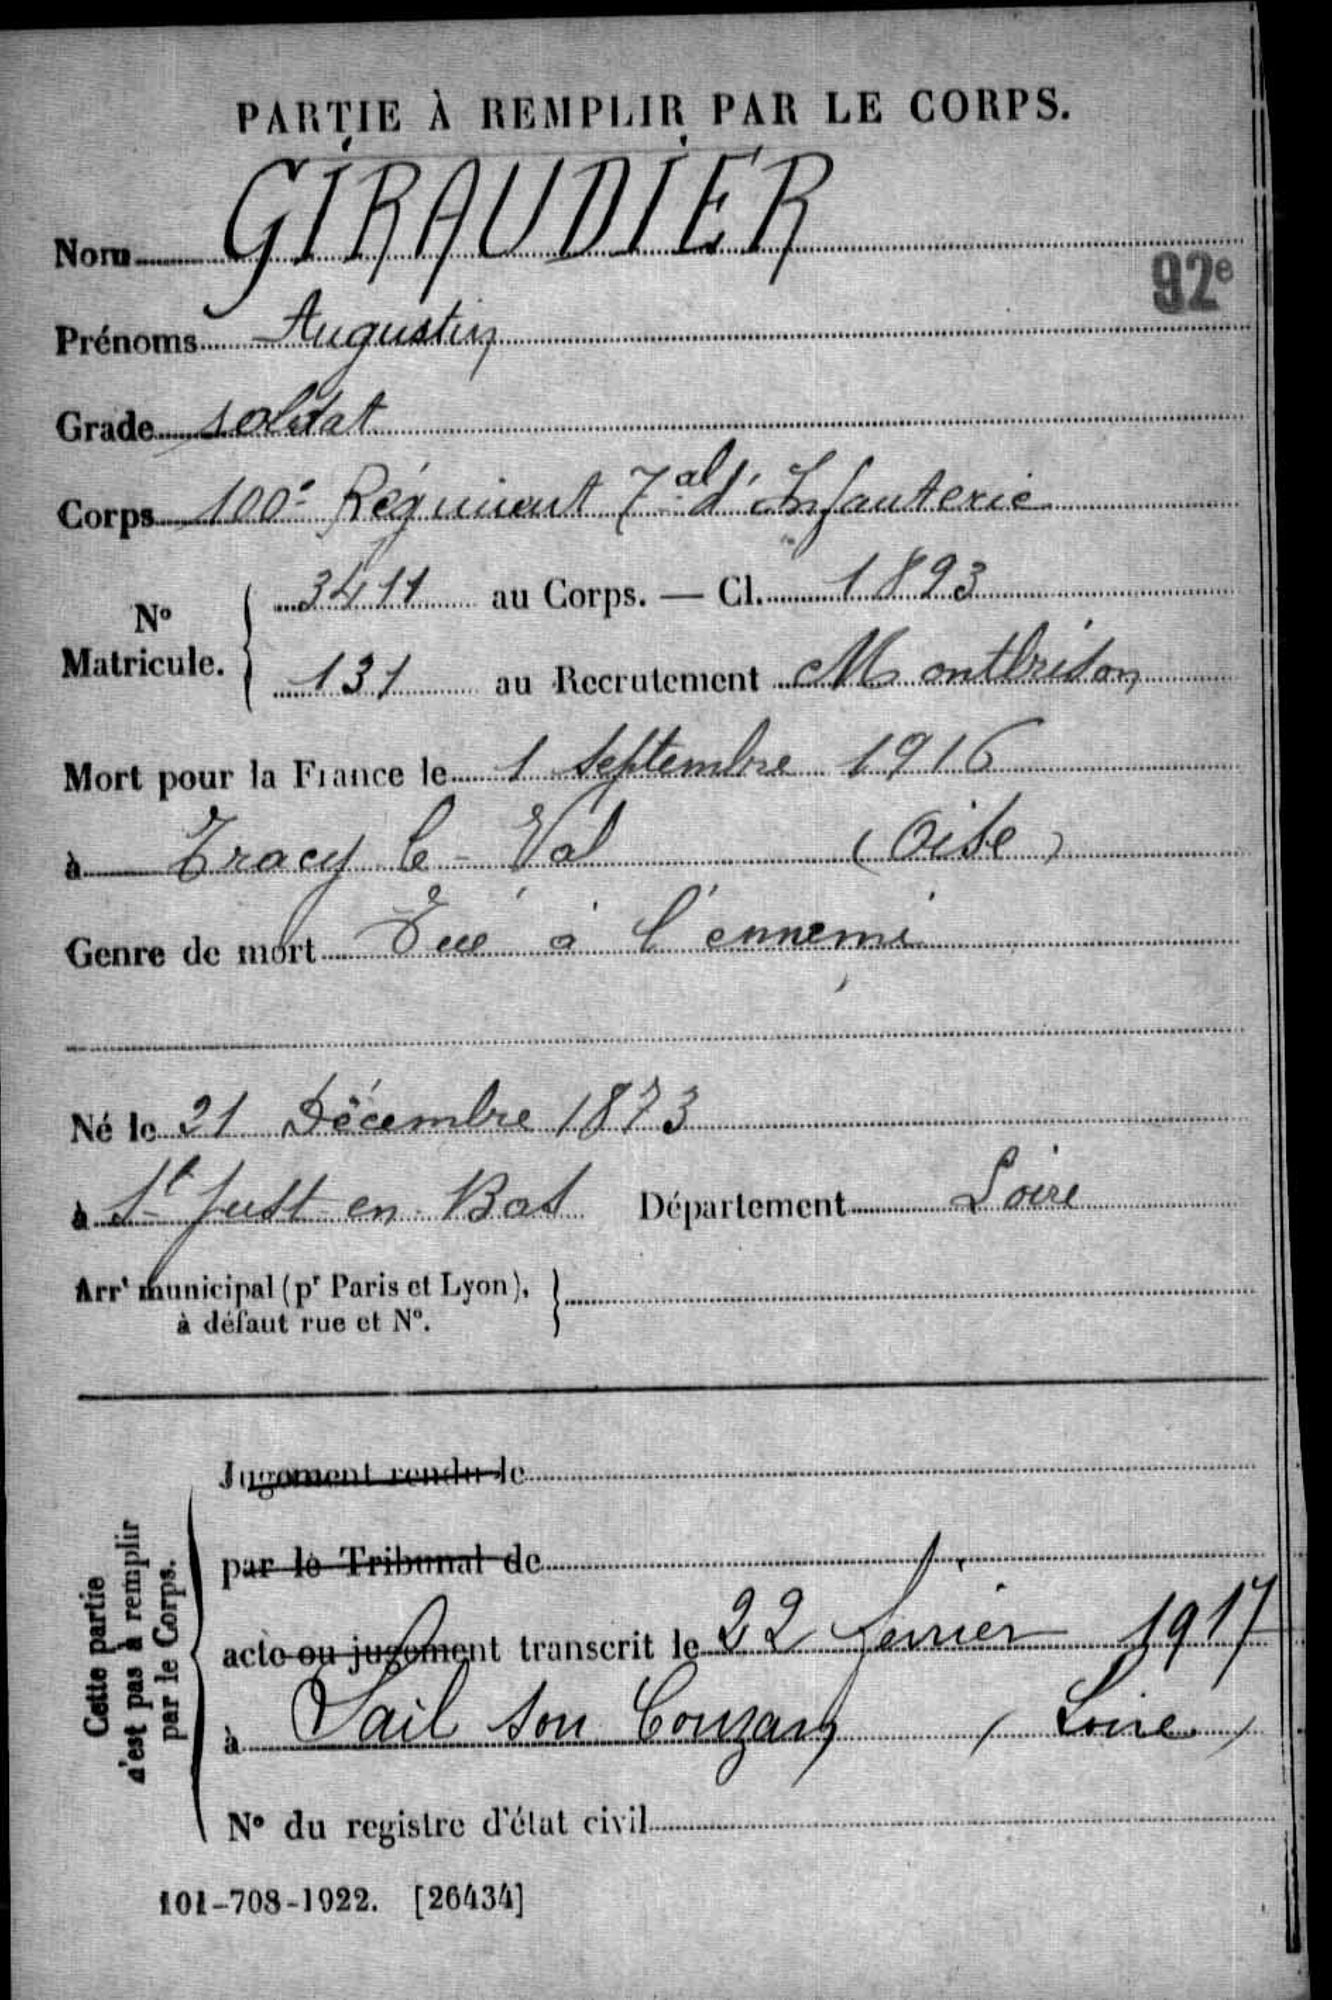 PARTIE À REMPLIR PAR LE CORPS.
Nom GIRAUDIER
92e
Prénoms Augustin
Grade soldat
Corps 100e Régiment Tal d'Infanterie
N° Matricule. { 3411 au Corps. — Cl. 1893
131 au Recrutement Montbrison
Mort pour la France le 1 septembre 1916
à Tracy le-Val (Oise)
Genre de mort Tué à l'ennemi
Né le 21 Décembre 1873
à St Just-en-Bas Département Loire
Arrt municipal (pr Paris et Lyon), }
à défaut rue et N°.
Cette partie
n'est pas à remplir
par le Corps.
Jugement rendu le
par le Tribunal de
acte ou jugement transcrit le 22 février 1917
à Sail sou Couzan (Loire)
N° du registre d'état civil
101-708-1922. [26434]